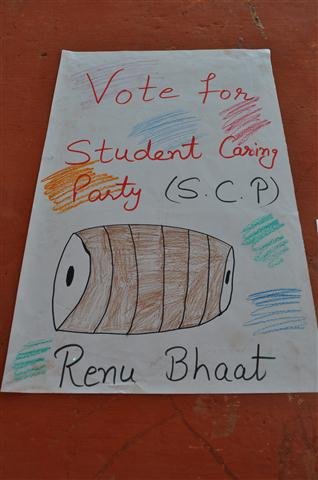 Vote for
Student Caring
Party (S.C.P)
Renu Bhaat